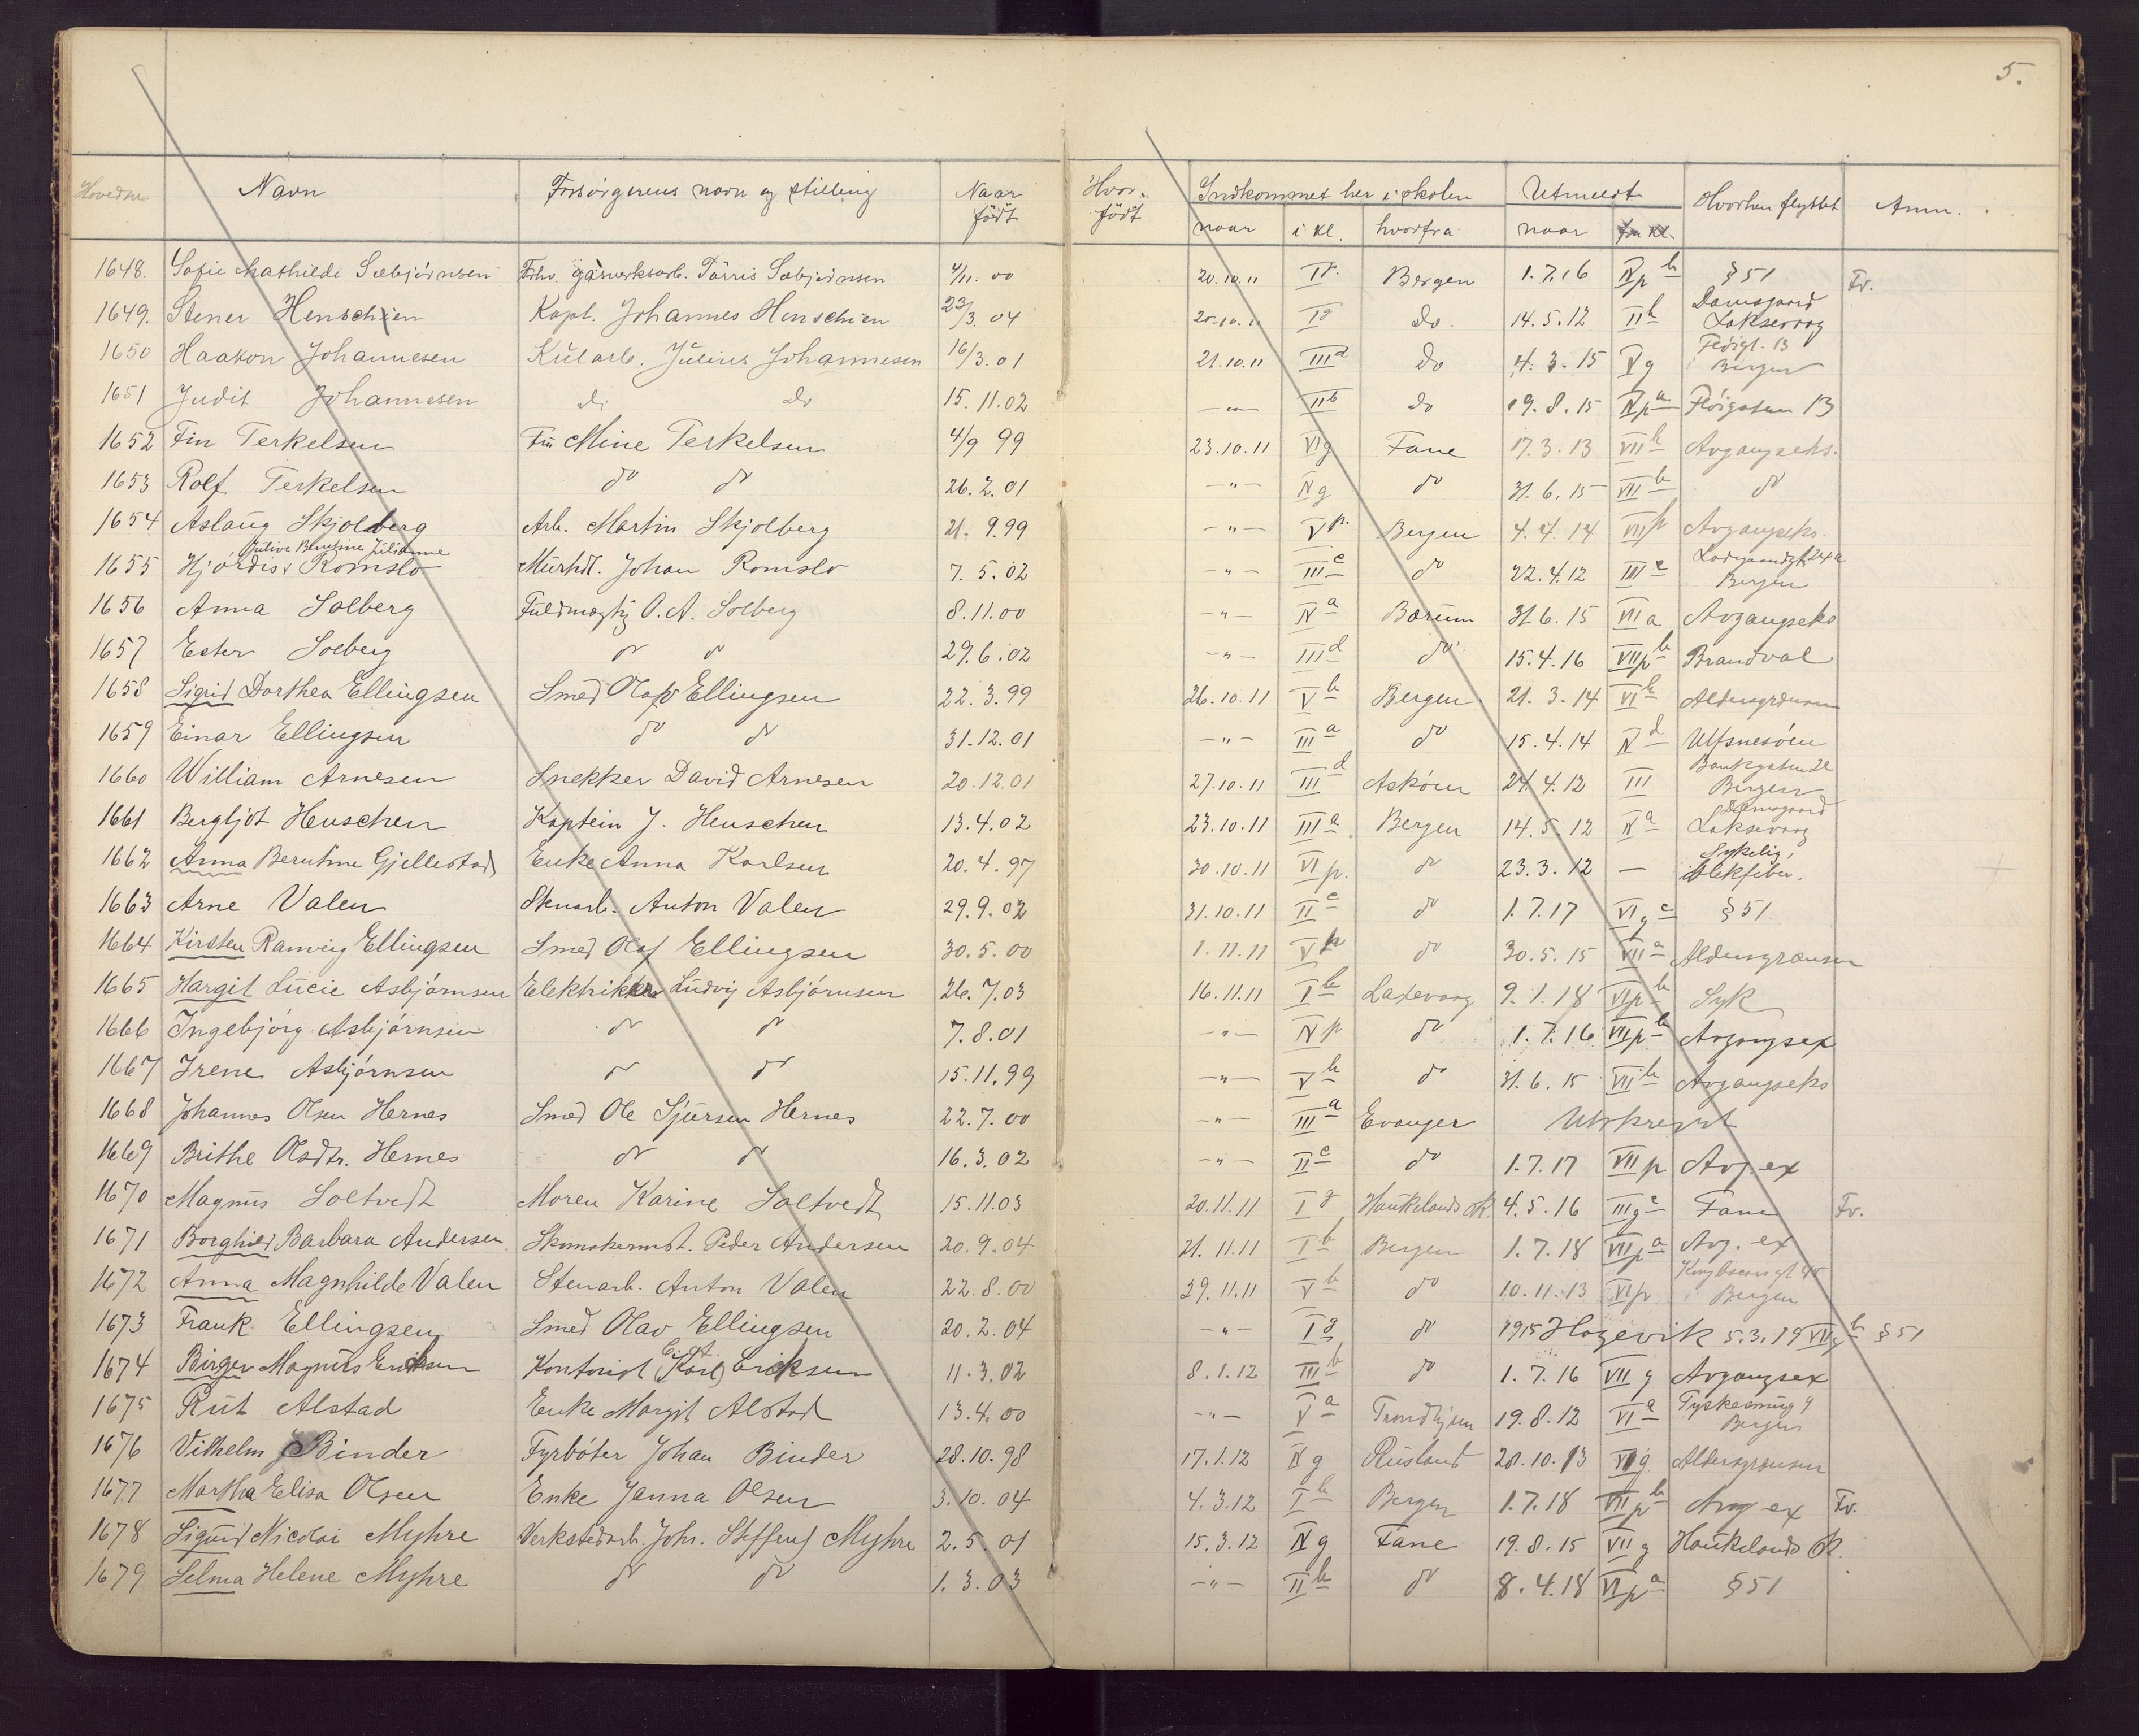 5.
Hovednr. Navn Forsörgerens navn og stilling Naar födt Hvor födt Indkommet her i skolen naar i kl. hvorfra Utmeldt naar fra kl. Hvorhen flyttet Anm.
1648. Sofie Mathilde Sæbjörnsen Forhv. gasverksarb. Törris Sæbjörnsen 4/11. 00 20.10.11 I g. Bergen 1.7.16 IV p b § 51 Fr.
1649. Stener Henschien Kapt. Johannes Henschien 23/3. 04 20.10.11 I g do. 14.5.12 II b Damsgaard Laksevaag
1650 Haakon Johannesen Kularb. Julius Johannesen 16/3.01 21.10.11 III d do 4.3.15 V g Flöigt. 13 Bergen
1651 Judit Johannesen do do 15.11.02 —"— II b do 19.8.15 IV p a Flöigaten 13
1652 Fin Terkelsen Fru Mine Terkelsen 4/9 99 23.10.11 VI g Fane 17.3.13 VII b Avgangseks.
1653 Rolf Terkelsen do do 26.2.01 —"— IV g do 31.6.15 VII b do
1654 Aslaug Skjolberg Arb. Martin Skjolberg 21.9.99 —"— V p. Bergen 4.4.14 VII p Avgangseks.
1655 Hjördis Berntine Julianne Romslo Murhdt. Johan Romslo 7.5.02 —"— III c do 22.4.12 III c Ladegaardsgt. 24a Bergen
1656 Anna Solberg Fuldmægtig O. A. Solberg 8.11.00 —"— IV a Bærum 31.6.15 VII a Avgangseks
1657 Ester Solberg do do 29.6.02 —"— III d do 15.4.16 VII p b Brandval
1658 Sigrid Dorthea Ellingsen Smed Olaf Ellingsen 22.3.99 26.10.11 V b Bergen 21.3.14 VI b Aldersgrænsen
1659 Einar Ellingsen do do 31.12.01 —"— III a do 15.4.14 IV d Ulfsnesöen
1660 William Arnesen Snekker David Arnesen 20.12.01 27.10.11 III d Asköen 24.4.12 III Bankgaten Bergen
1661 Bergljot Henschen Kaptein J. Henschen 13.4.02 23.10.11 III a Bergen 14.5.12 IV a Damsgaard Laksevaag
1662 Anna Berntine Gjellestad Enke Anna Karlsen 20.4.97 30.10.11 VI p. do 23.3.12 — Sykelig, blekfeber.
1663 Arne Valen Stenarb. Anton Valen 29.9.02 31.10.11 II c do 1.7.17 VI g c § 51
1664 Kirsten Ranveig Ellingsen Smed Olaf Ellingsen 30.5.00 1.11.11 V p do 30.5.15 VII a Aldersgrænsen
1665 Margit Lucie Asbjörnsen Elektriker Ludvig Asbjörnsen 26.7.03 16.11.11 I b Laxevaag 9.1.18 VI p b Syk
1666 Ingebjörg Asbjörnsen do do 7.8.01 —"— IV p do 1.7.16 VII p b Avgangsex
1667 Irene Asbjörnsen do do 15.11.99 —"— V b do 31.6.15 VII b Avgangseks
1668 Johannes Olsen Hernes Smed Ole Sjursen Hernes 22.7.00 —"— III a Evanger Utskrevet
1669 Brithe Olsdtr. Hernes do do 16.3.02 —"— II c do 1.7.17 VII p Avg. ex
1670 Magnus Soltvedt Moren Karine Soltvedt 15.11.03 20.11.11 I g Haukelands sk. 4.5.16 III g c Fane Fr.
1671 Borghild Barbara Andersen Skomakermst. Peder Andersen 20.9.04 21.11.11 I b Bergen 1.7.18 VII p a Avg. ex
1672 Anna Magnhilde Valen Stenarb. Anton Valen 22.8.00 29.11.11 V b do 10.11.13 VI p Bergen
1673 Frank Ellingsen Smed Olav Ellingsen 20.2.04 —"— I g do 1915 Hagevik 5.3.19 VII g b § 51
1674 Birger Magnus Eriksen Kontorist (Karl) Eriksen 11.3.02 8.1.12 III b do 1.7.16 VII g Avgangsex
1675 Rut Alstad Enke Margit Alstad 13.4.00 —"— V a Trondhjem 19.8.12 VI a Tyskesmug 9 Bergen
1676 Vilhelm Binder Fyrböter Johan Binder 28.10.98 17.1.12 IV g Rusland 28.10.13 VI g Aldersgrænsen
1677 Martha Elisa Olsen Enke Janna Olsen 3.10.04 4.3.12 I b Bergen 1.7.18 VII p b Avg ex Fr.
1678 Sigurd Nicolai Myhre Verkstedarb. Johs. Steffens Myhre 2.5.01 15.3.12 IV g Fane 19.8.15 VII g Haukelands sk.
1679 Selma Helene Myhre do do 1.3.03 —"— II b do 8.4.18 VI p a § 51